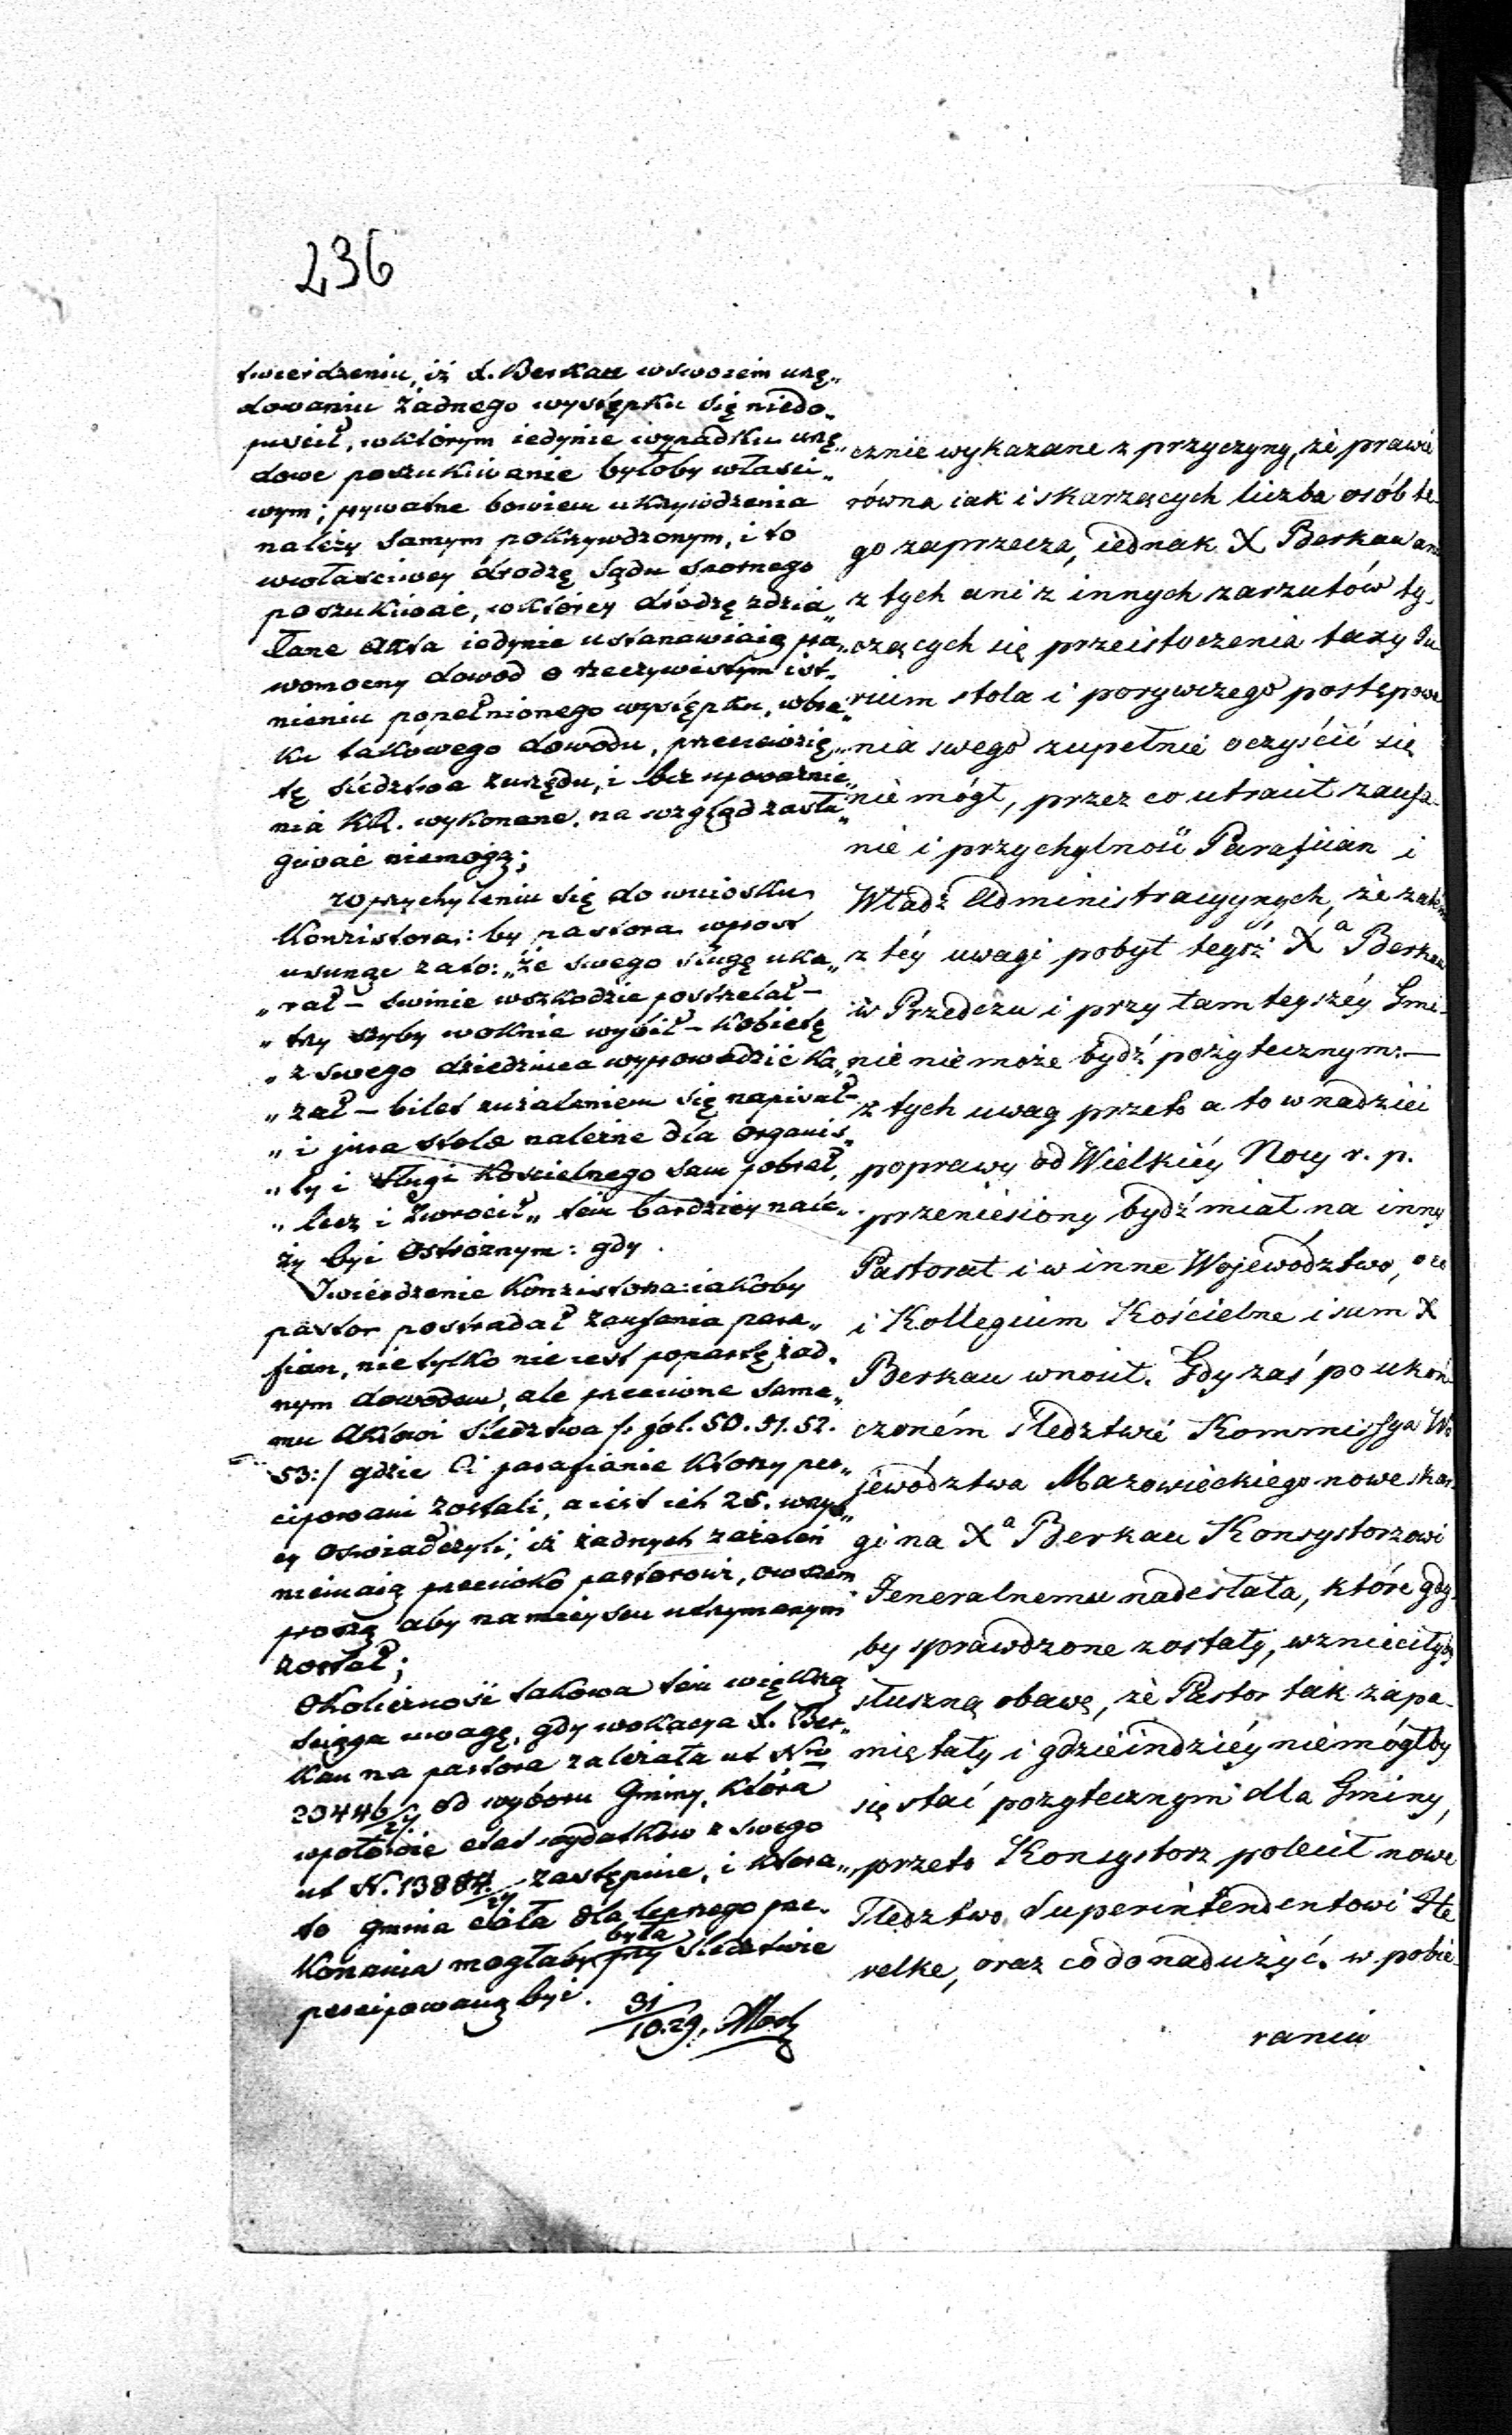 236
twierdzeniu, iż X. Berkau w swoiem urzę„
dowaniu żadnego występku się niedo„
puścił, w którym iedynie wypadku urzę„
dowe poszukiwanie byłoby właści„
wym; prywatne bowiem ukrzywdzenia
należy samym pokrzywdzonym, i to
w właściwey drodzę Sądu spornego
poszukiwać, w którey drodzę zdzia„
łane akta iedynie ustanawiaią pra„
womocny dowod o rzeczywistym ist„
nieniu popełnionego występku, w bra„
ku takowego dowodu, przedsięwzię„
te śledztwa z urzędu, i bez upoważnie„
nia KR. wykonane, na wzgląd zasłu„
giwać niemogą;
w przychyleniu się do wniosku
Konzistorza: by pastora wprost
usunąć zato: „że swego sługę uka„
„rał – świnie w szkodzie postrzelał –
„trzy szyby w oknie wybił – kobietę
„z swego dziedzińca wyprowadzić ka„
„zał – bilet z użaleniem się napisał –
„i jura stolæ należne dla organis„
„ty i sługi kościelnego sam pobrał,
„lecz i zwrócił„ tem bardziey nale„
ży być ostróżnym: gdy
Twierdzenie Konzistorza: iakoby
pastor postradał zaufania para„
fian, nie tylko nie iest popartę żad„
nym dowodem, ale przeciwne same„
mu aktowi śledztwa /: fol. 50. 51. 52.
53:/ gdzie Ci parafianie którzy per„
cipowani zostali, a iest ich 25. wszys„
cy oświadczyli, iż żadnych zażaleń
niemaią przeciwko pastorowi, owszem
proszą aby na mieyscu utrzymanym
został;
Okoliczność takowa tem większą
ściąga uwagę, gdy wokacya X. Ber„
kau na pastora zależała ut Nro
23446/24 od wyboru Gminy, która
w połowie etat wydatków z swego
ut N. 13884/24 zastępuie, i która„
to gmina cała dla lepszego prze„
konania mogłaby była przy śledztwie
percipowaną być.
31/10.29.
cznie wykazane z przyczyny, że prawie
równa iak i skarzących liczba osób te„
go zaprzecza, iednak X Berkau ani
z tych ani z innych zarzutów ty„
czących się przeistoczenia taxy Ju„
rium stola i porywczego postępowa„
nia swego zupełnie oczyścić się
nie mógł, przez co utracił zaufa„
nie i przychylność Parafiian i
Władz Administracyynych, że zatem
z téy uwagi pobyt tegoż Xa Berkau
w Przedczu i przy tamteyszéy Gmi„
nie nie może bydź pożytecznym: —
z tych uwag przeto a to w nadziei
poprawy od Wielkiéy Nocy r. p.
przeniesiony bydź miał na inny
Pastorat i w inne Województwo, o co
i Kollegium Kościelne i sam X
Berkau wnosił. Gdy zaś po ukoń„
czoném śledztwie Kommissya Wo„
jewództwa Mazowieckiego nowe skar„
gi na Xa Berkau Konsystorzowi
Jeneralnemu nadesłała, które gdy„
by sprawdzone zostały, wznieciłyby
słuszną obawę, że Pastor tak zapa„
miętały i gdzieindziéy niemógłby
się stać pożytecznym dla Gminy,
przeto Konsystorz polecił nowe
śledztwo Superintendentowi Ha
velke, oraz co do nadużyć w pobie„
raniu